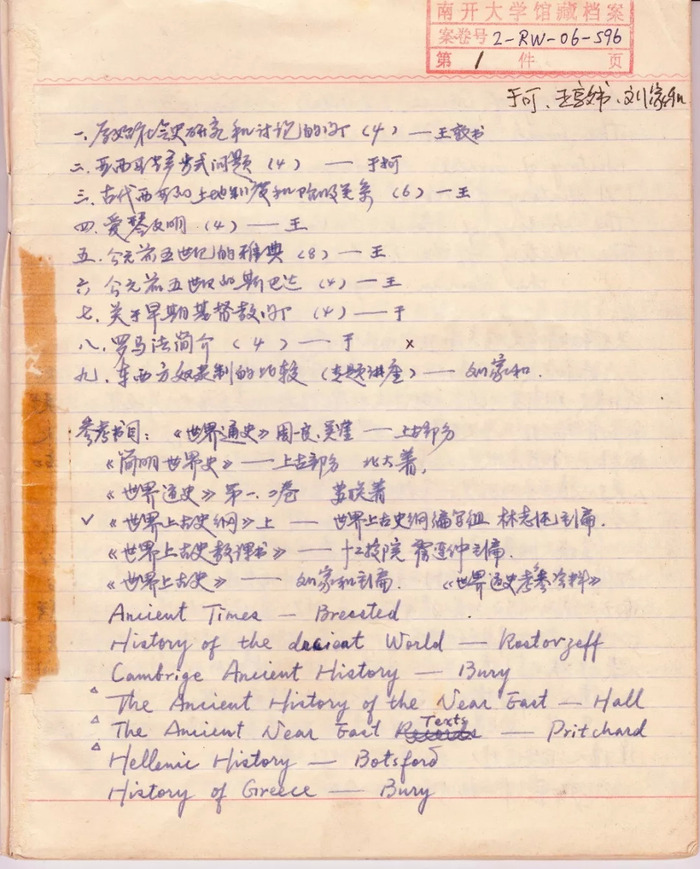 南开大学馆藏档案
案卷号 2-RW-06-596
第 1 件 页
于可、王敦书、刘家和
一、原始社会史研究和讨论的问丁 (4) — 王敦书
二、亚西亚生产方式问题 (4) — 于可
三、古代西亚的土地制度和阶级关系 (6) — 王
四、爱琴文明 (4) — 王
五、公元前五世纪的雅典 (8) — 王
六 公元前五世纪的斯巴达 (4) — 王
七、关于早期基督教问丁 (4) — 于
八、罗马法简介 (4) — 于 x
九、东西方奴隶制的比较 (专题讲座) — 刘家和.
参考书目: 《世界通史》周一良、吴廑 — 上古部分
《简明世界史》 — 上古部分 北大著,
《世界通史》第一、二卷 苏联著
✓ 《世界上古史纲》上 — 世界上古史纲编写组 林志纯主编.
《世界上古史教课书》 — 十二院 主编.
《世界上古史》 — 刘家和主编. 《世界通史参考资料》
Ancient Times — Breasted
History of the Ancient World — Rostovzeff
Cambrige Ancient History — Bury
△ The Ancient History of the Near East — Hall
△ The Ancient Near East Texts — Pritchard
△ Hellenic History — Botsford
History of Greece — Bury